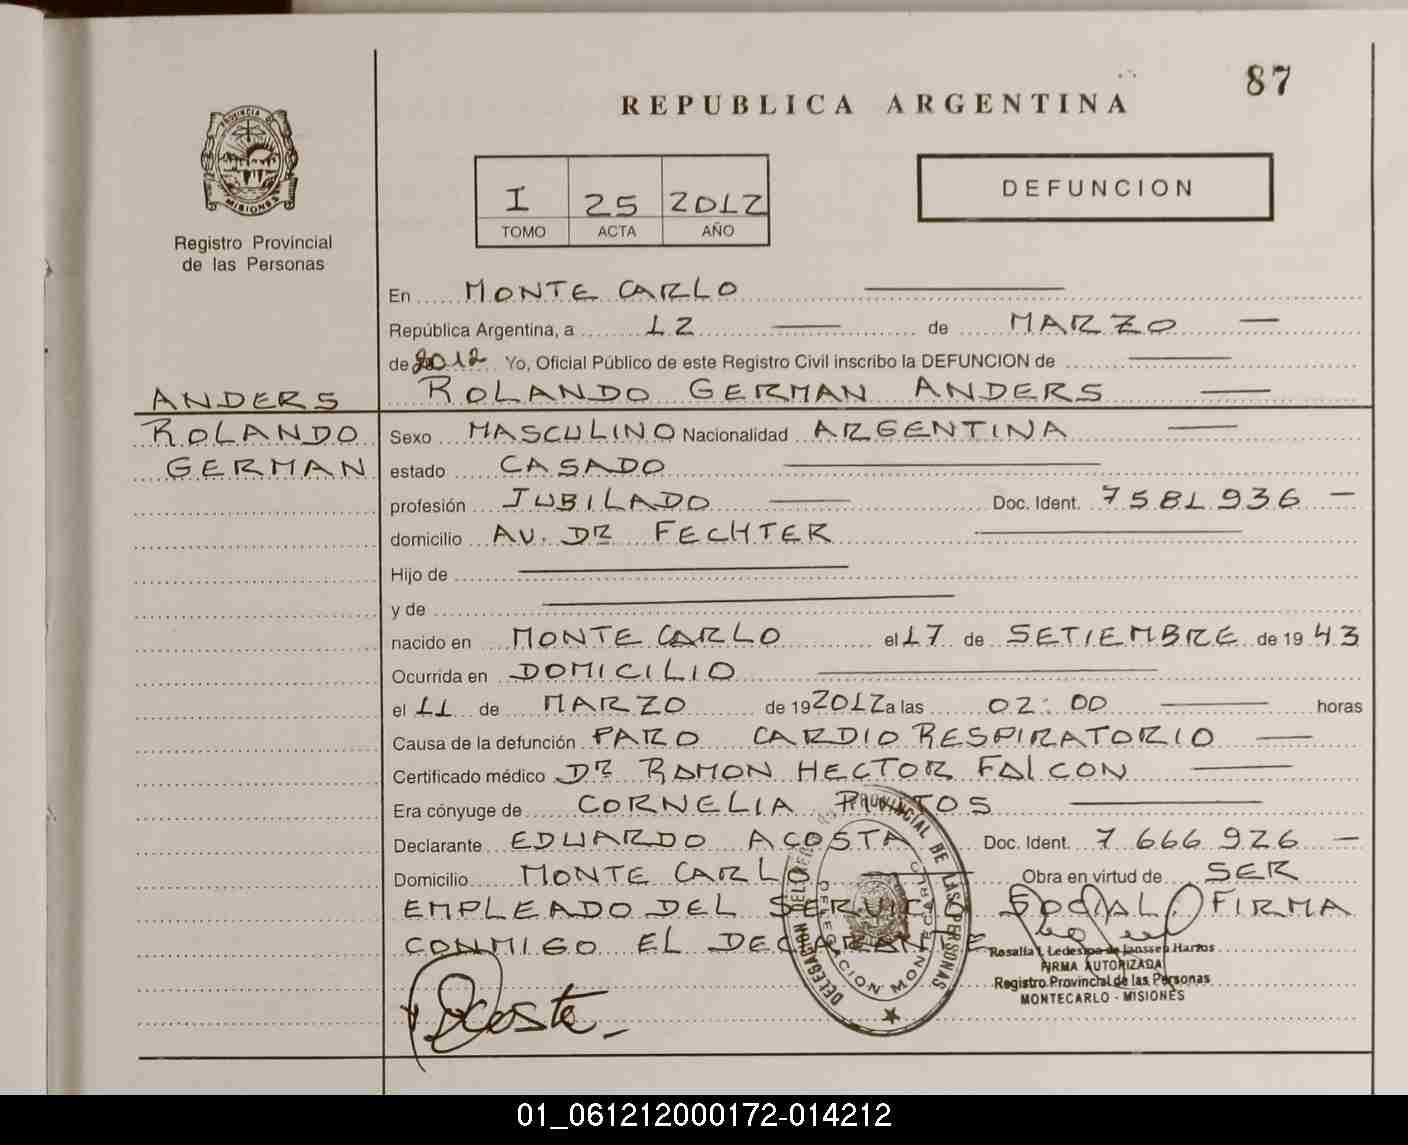 87
REPUBLICA ARGENTINA
PROVINCIA DE
MISIONES
Registro Provincial
de las Personas
I 25 2012
TOMO ACTA AÑO
DEFUNCION
En MONTE CARLO
República Argentina, a 12 de MARZO
de 2012 Yo, Oficial Público de este Registro Civil inscribo la DEFUNCION de
ANDERS ROLANDO GERMAN ANDERS
ROLANDO Sexo MASCULINO Nacionalidad ARGENTINA
GERMAN estado CASADO
profesión JUBILADO Doc. Ident. 7581936
domicilio AV. DR FECHTER
Hijo de
y de
nacido en MONTE CARLO el 17 de SETIEMBRE de 19 43
Ocurrida en DOMICILIO
el 11 de MARZO de 19 2012 a las 02:00 horas
Causa de la defunción PARO CARDIO RESPIRATORIO
Certificado médico DR RAMON HECTOR FALCON
Era cónyuge de CORNELIA
Declarante EDUARDO ACOSTA Doc. Ident. 7 666 926
Domicilio MONTE CARLO Obra en virtud de SER
EMPLEADO DEL SERVICIO SOCIAL. FIRMA
CONMIGO EL DECLARANTE
Acosta
DELEGACION MONTECARLO
PROVINCIAL DE LAS PERSONAS
Rosalia I. Ledesma de Janssen Harzos
FIRMA AUTORIZADA
Registro Provincial de las Personas
MONTECARLO - MISIONES
01_061212000172-014212